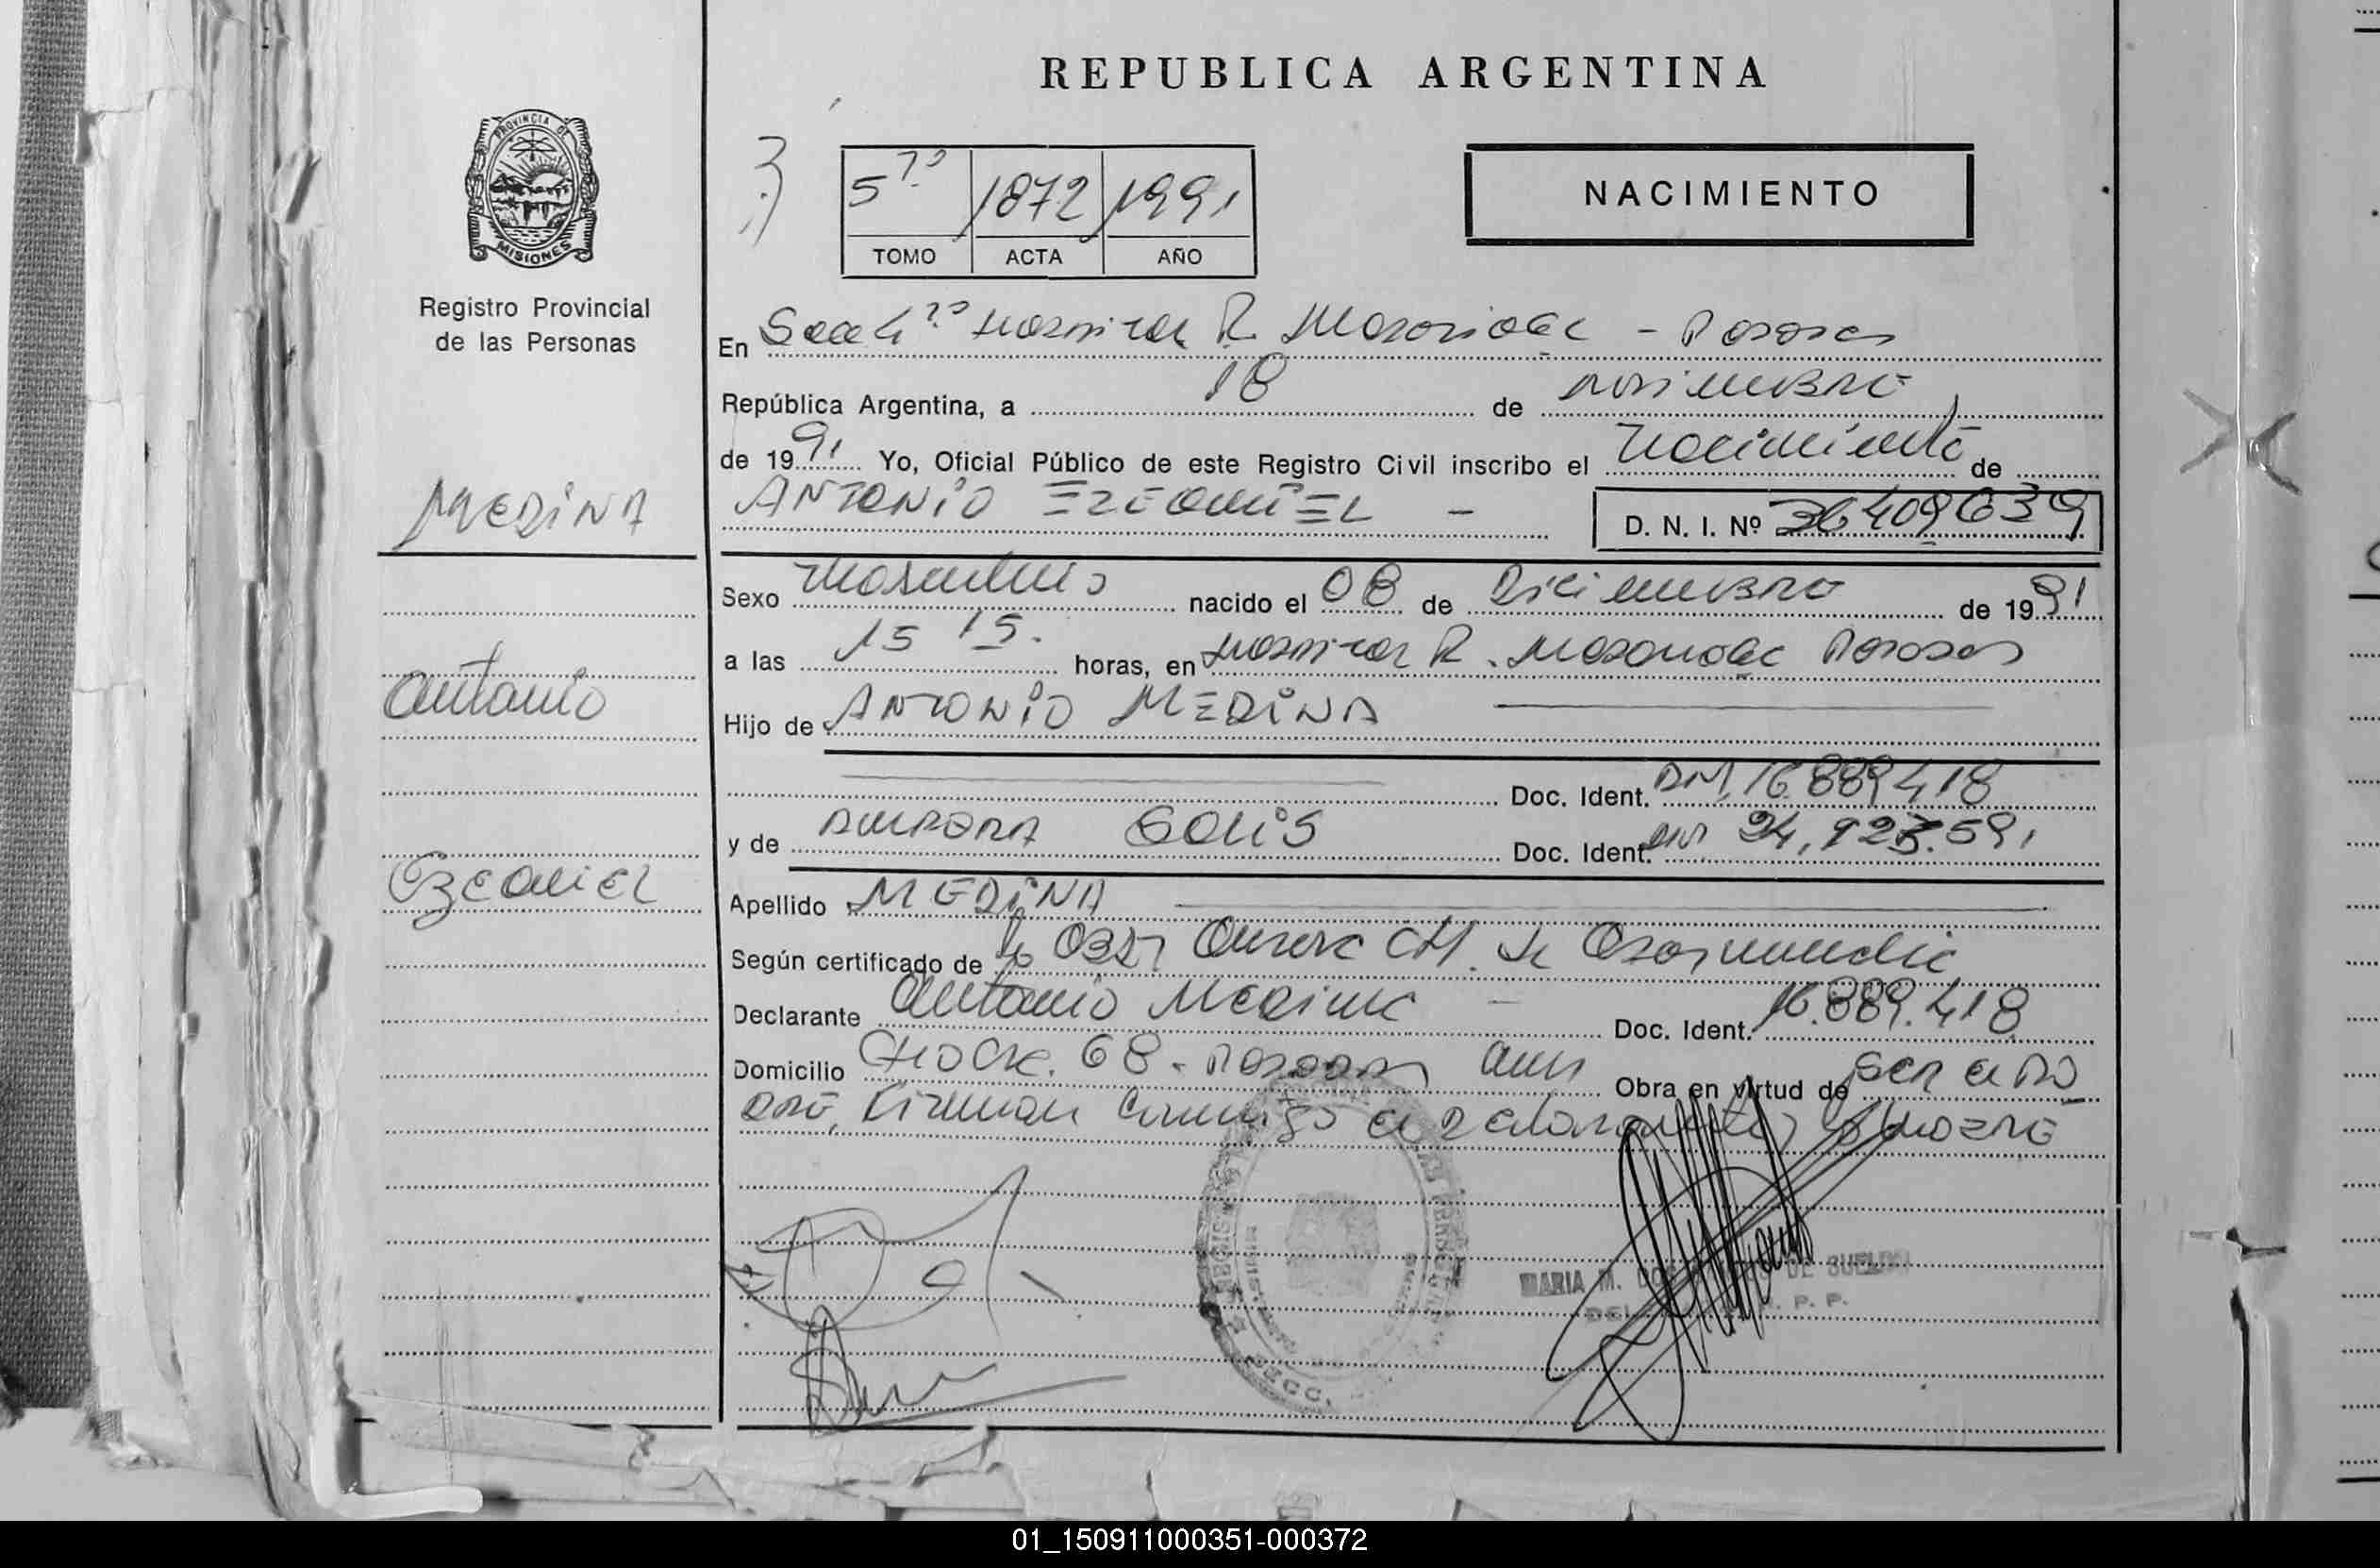 REPUBLICA ARGENTINA
PROVINCIA DE
MISIONES
Registro Provincial
de las Personas
5to 1872 1991
TOMO ACTA AÑO
NACIMIENTO
En Secc 4ta Hospital R. Madariaga - Posadas
República Argentina, a 18 de noviembre
de 1991 Yo, Oficial Público de este Registro Civil inscribo el Nacimiento de
MEDINA
ANTONIO EZEQUIEL -
D. N. I. Nº 36409639
Sexo Masculino nacido el 08 de Diciembre de 1991
a las 15 15. horas, en Hospital R. Madariaga Posadas
Antonio
Hijo de ANTONIO MEDINA
Doc. Ident. DNI 16.889418
y de AURORA SOLIS Doc. Ident. DNI 24.923.591
Ezequiel
Apellido MEDINA
Según certificado de la Obst
Declarante Antonio Medina - Doc. Ident. 16.889.418
Domicilio 68. Posadas
Obra en virtud de ser el
Firman Conmigo el declarante y la Madre
MARIA M. DE
P. P.
SECC.
01_150911000351-000372